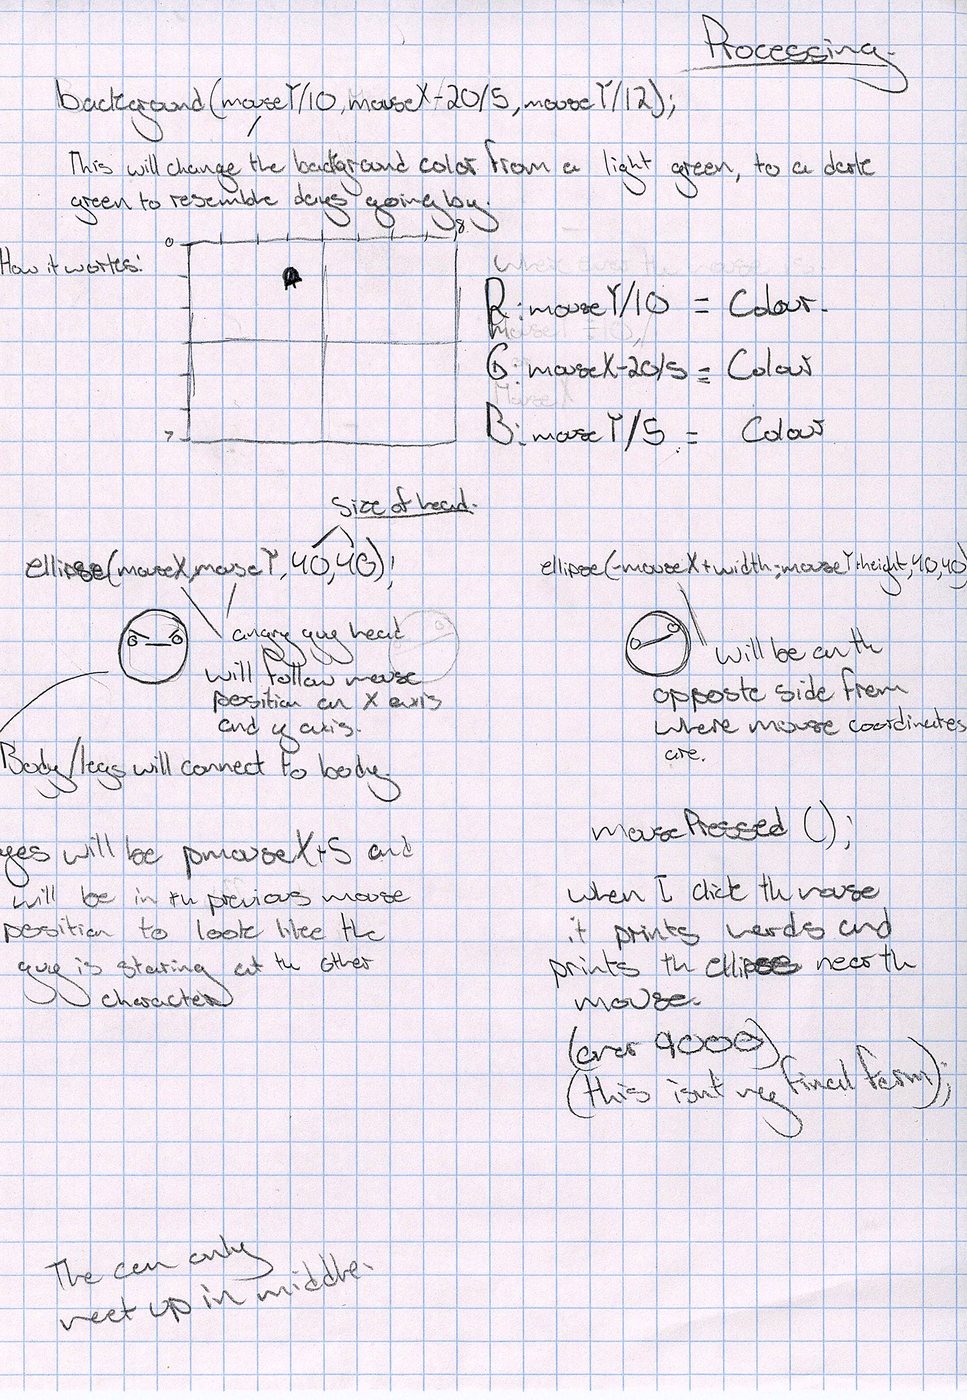 Processing.
background(mouseY/10, mouseX-20/5, mouseY/12);
This will change the background color from a light green, to a dark
green to resemble days going by.
0
8
How it works:
7
R: mouseY/10 = Colour.
G: mouseX-20/5 = Colour
B: mouseY/5 = Colour
Size of head.
ellipse(mouseX, mouseY, 40, 40);
angry guy head
will follow mouse
position on X axis
and y axis.
Body/legs will connect to body.
eyes will be pmouseX+5 and
will be in th previous mouse
position to look like the
guy is staring at th other
character
ellipse(-mouseX+width,-mouseY+height,40,40)
will be on th
opposte side from
where mouse coordinates
are.
mousePressed ();
when I click th mouse
it prints words and
prints th ellipse near th
mouse.
(over 9000)
(this isn't my final form);
The can only
meet up in middle.